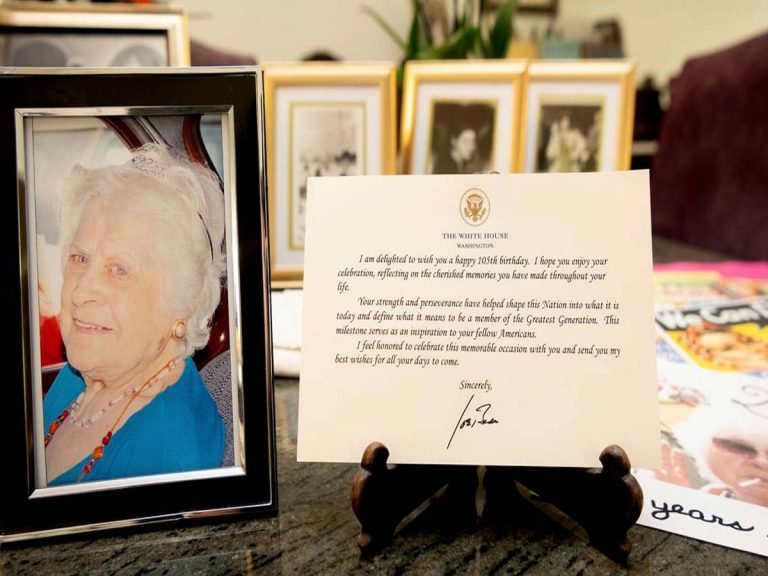 THE WHITE HOUSE
WASHINGTON
I am delighted to wish you a happy 105th birthday. I hope you enjoy your
celebration, reflecting on the cherished memories you have made throughout your
life.
Your strength and perseverance have helped shape this Nation into what it is
today and define what it means to be a member of the Greatest Generation. This
milestone serves as an inspiration to your fellow Americans.
I feel honored to celebrate this memorable occasion with you and send you my
best wishes for all your days to come.
Sincerely,
We Can
years